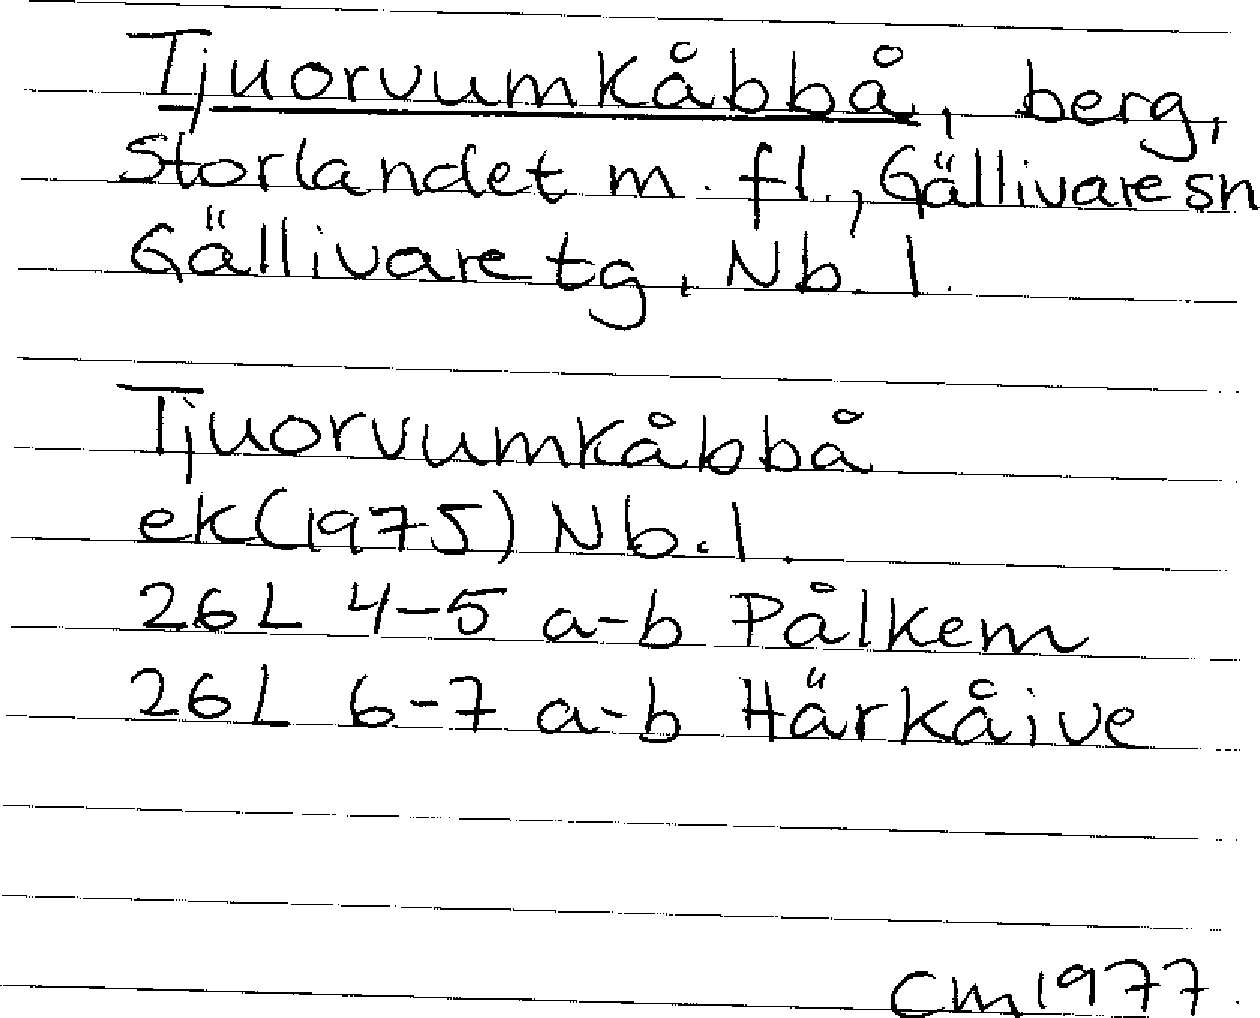 Tjuorvumkåbbå, berg,
Storlandet m. fl., Gällivare sn
Gällivare tg, Nb. l.
Tjuorvumkåbbå
ek (1975) Nb. l.
26L 4-5 a-b Pålkem
26L 6-7 a-b Härkåive
Cm 1977.